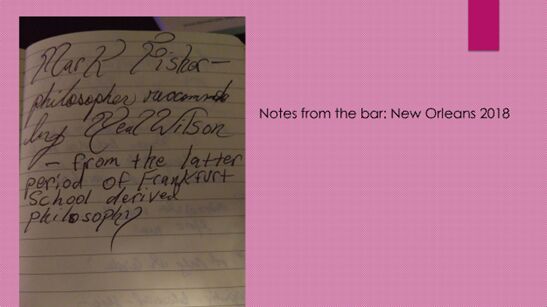 Mark Fisher –
philosopher recommended
by Neal Wilson
– from the latter
period of Frankfurt
School derived
philosophy
Notes from the bar: New Orleans 2018